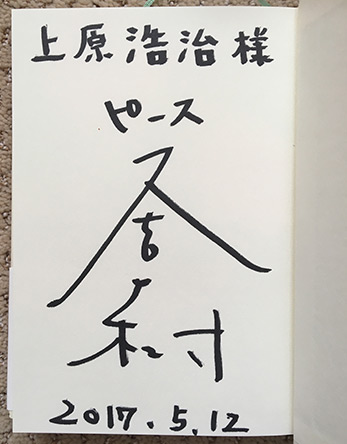 上原浩治様
ピース
又
吉
2017.5.12